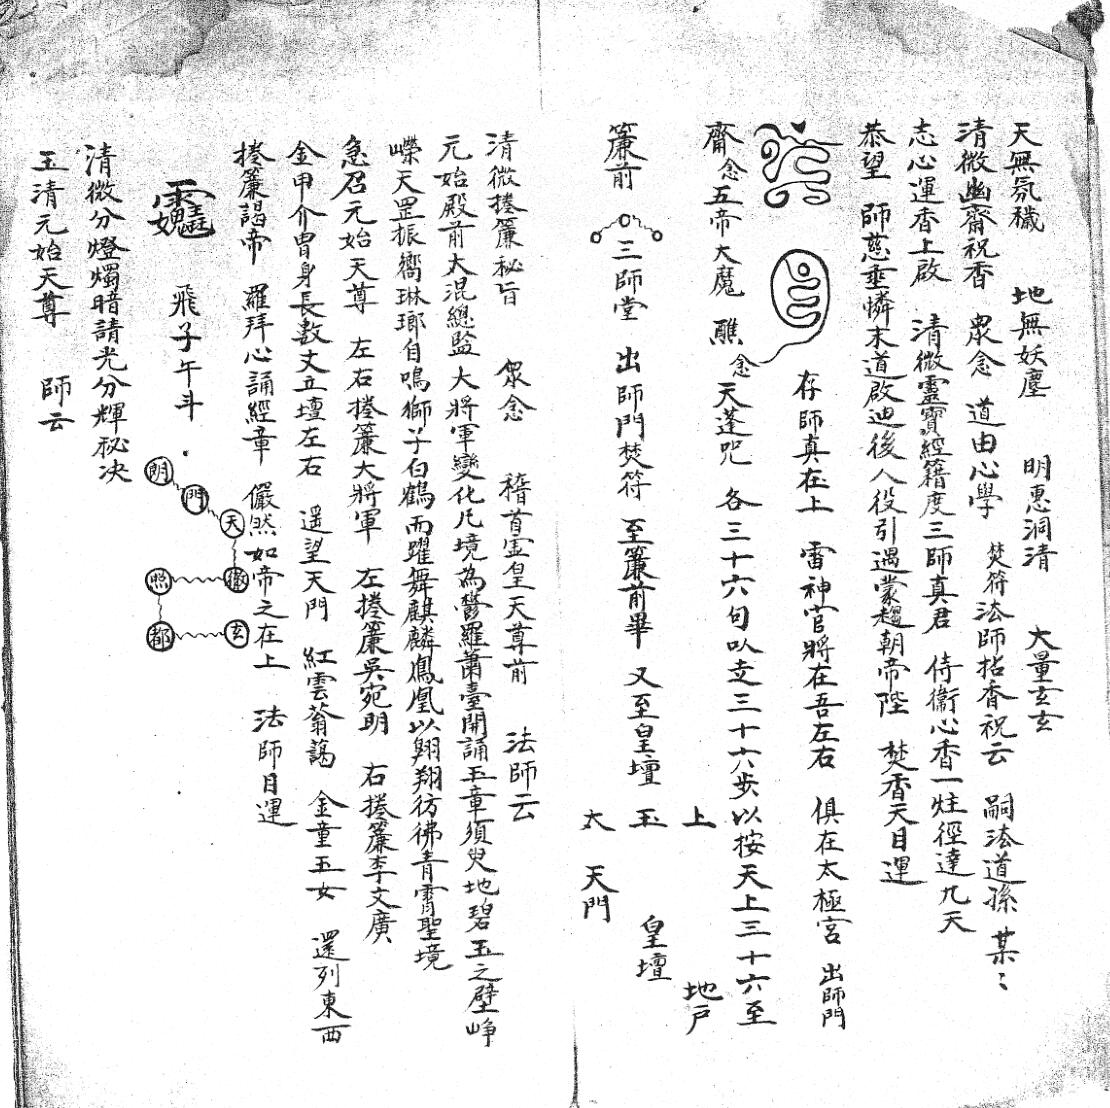 天無氛穢　地無妖塵　明惠洞清　大量玄玄
清微幽齋祝香　衆念　道由心學　焚符法師拈香祝云　嗣法道孫　某〻
志心運香上啟　清微靈寶經籍度三師真君　侍衛心香一炷徑達九天
恭望　師慈垂憐末道啟迪後人役引遇蒙趨朝帝陛　焚香天目運
存師真在上　雷神官將在吾左右　俱在太極宮　出師門
齋念五帝大魔　醮念天蓬咒　各三十六句以走三十六步以按天上三十六至
上　地户
簾前　三師堂　出師門焚符　至簾前畢　又至皇壇　玉　皇壇
太　天門
清微捲簾秘旨　衆念　稽首靈皇天尊前　法師云
元始殿前大混總監大將軍變化凡境為鬱羅蕭臺開誦玉章須臾地碧玉之壁崢
嶸天罡振嚮琳瑯自鳴獅子白鶴而躍舞麒麟鳳凰以翱翔彷彿青霄聖境
急召元始天尊　左右捲簾大將軍　左捲簾吳宛明　右捲簾李文廣
金甲介胄身長数丈立壇左右　遥望天門　紅雲蓊藹　金童玉女　還列東西
捲簾謁帝　羅拜心誦經章　儼然如帝之在上　法師目運
飛子午斗
朗
門
天
徹
照
都
玄
清微分燈燭暗請光分輝秘决
玉清元始天尊　師云